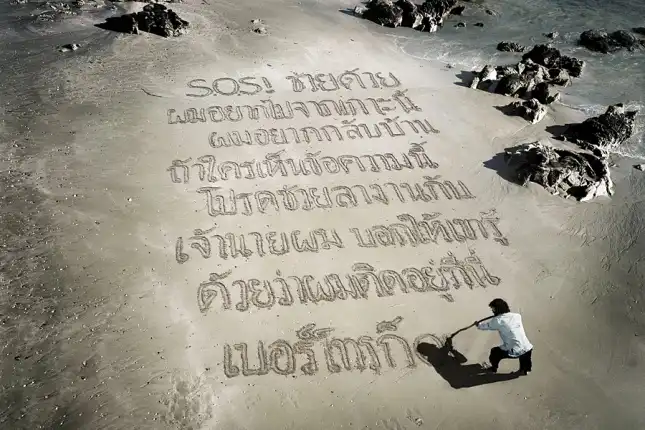 S.O.S! ช่วยด้วย
ผมอยากไปจากเกาะนี้
ผมอยากกลับบ้าน
ถ้าใครเห็นข้อความนี้
โปรดช่วยลางานกับ
เจ้านายผม บอกให้เขารู้
ด้วยว่าผมติดอยู่ที่นี่
เบอร์โทรก็